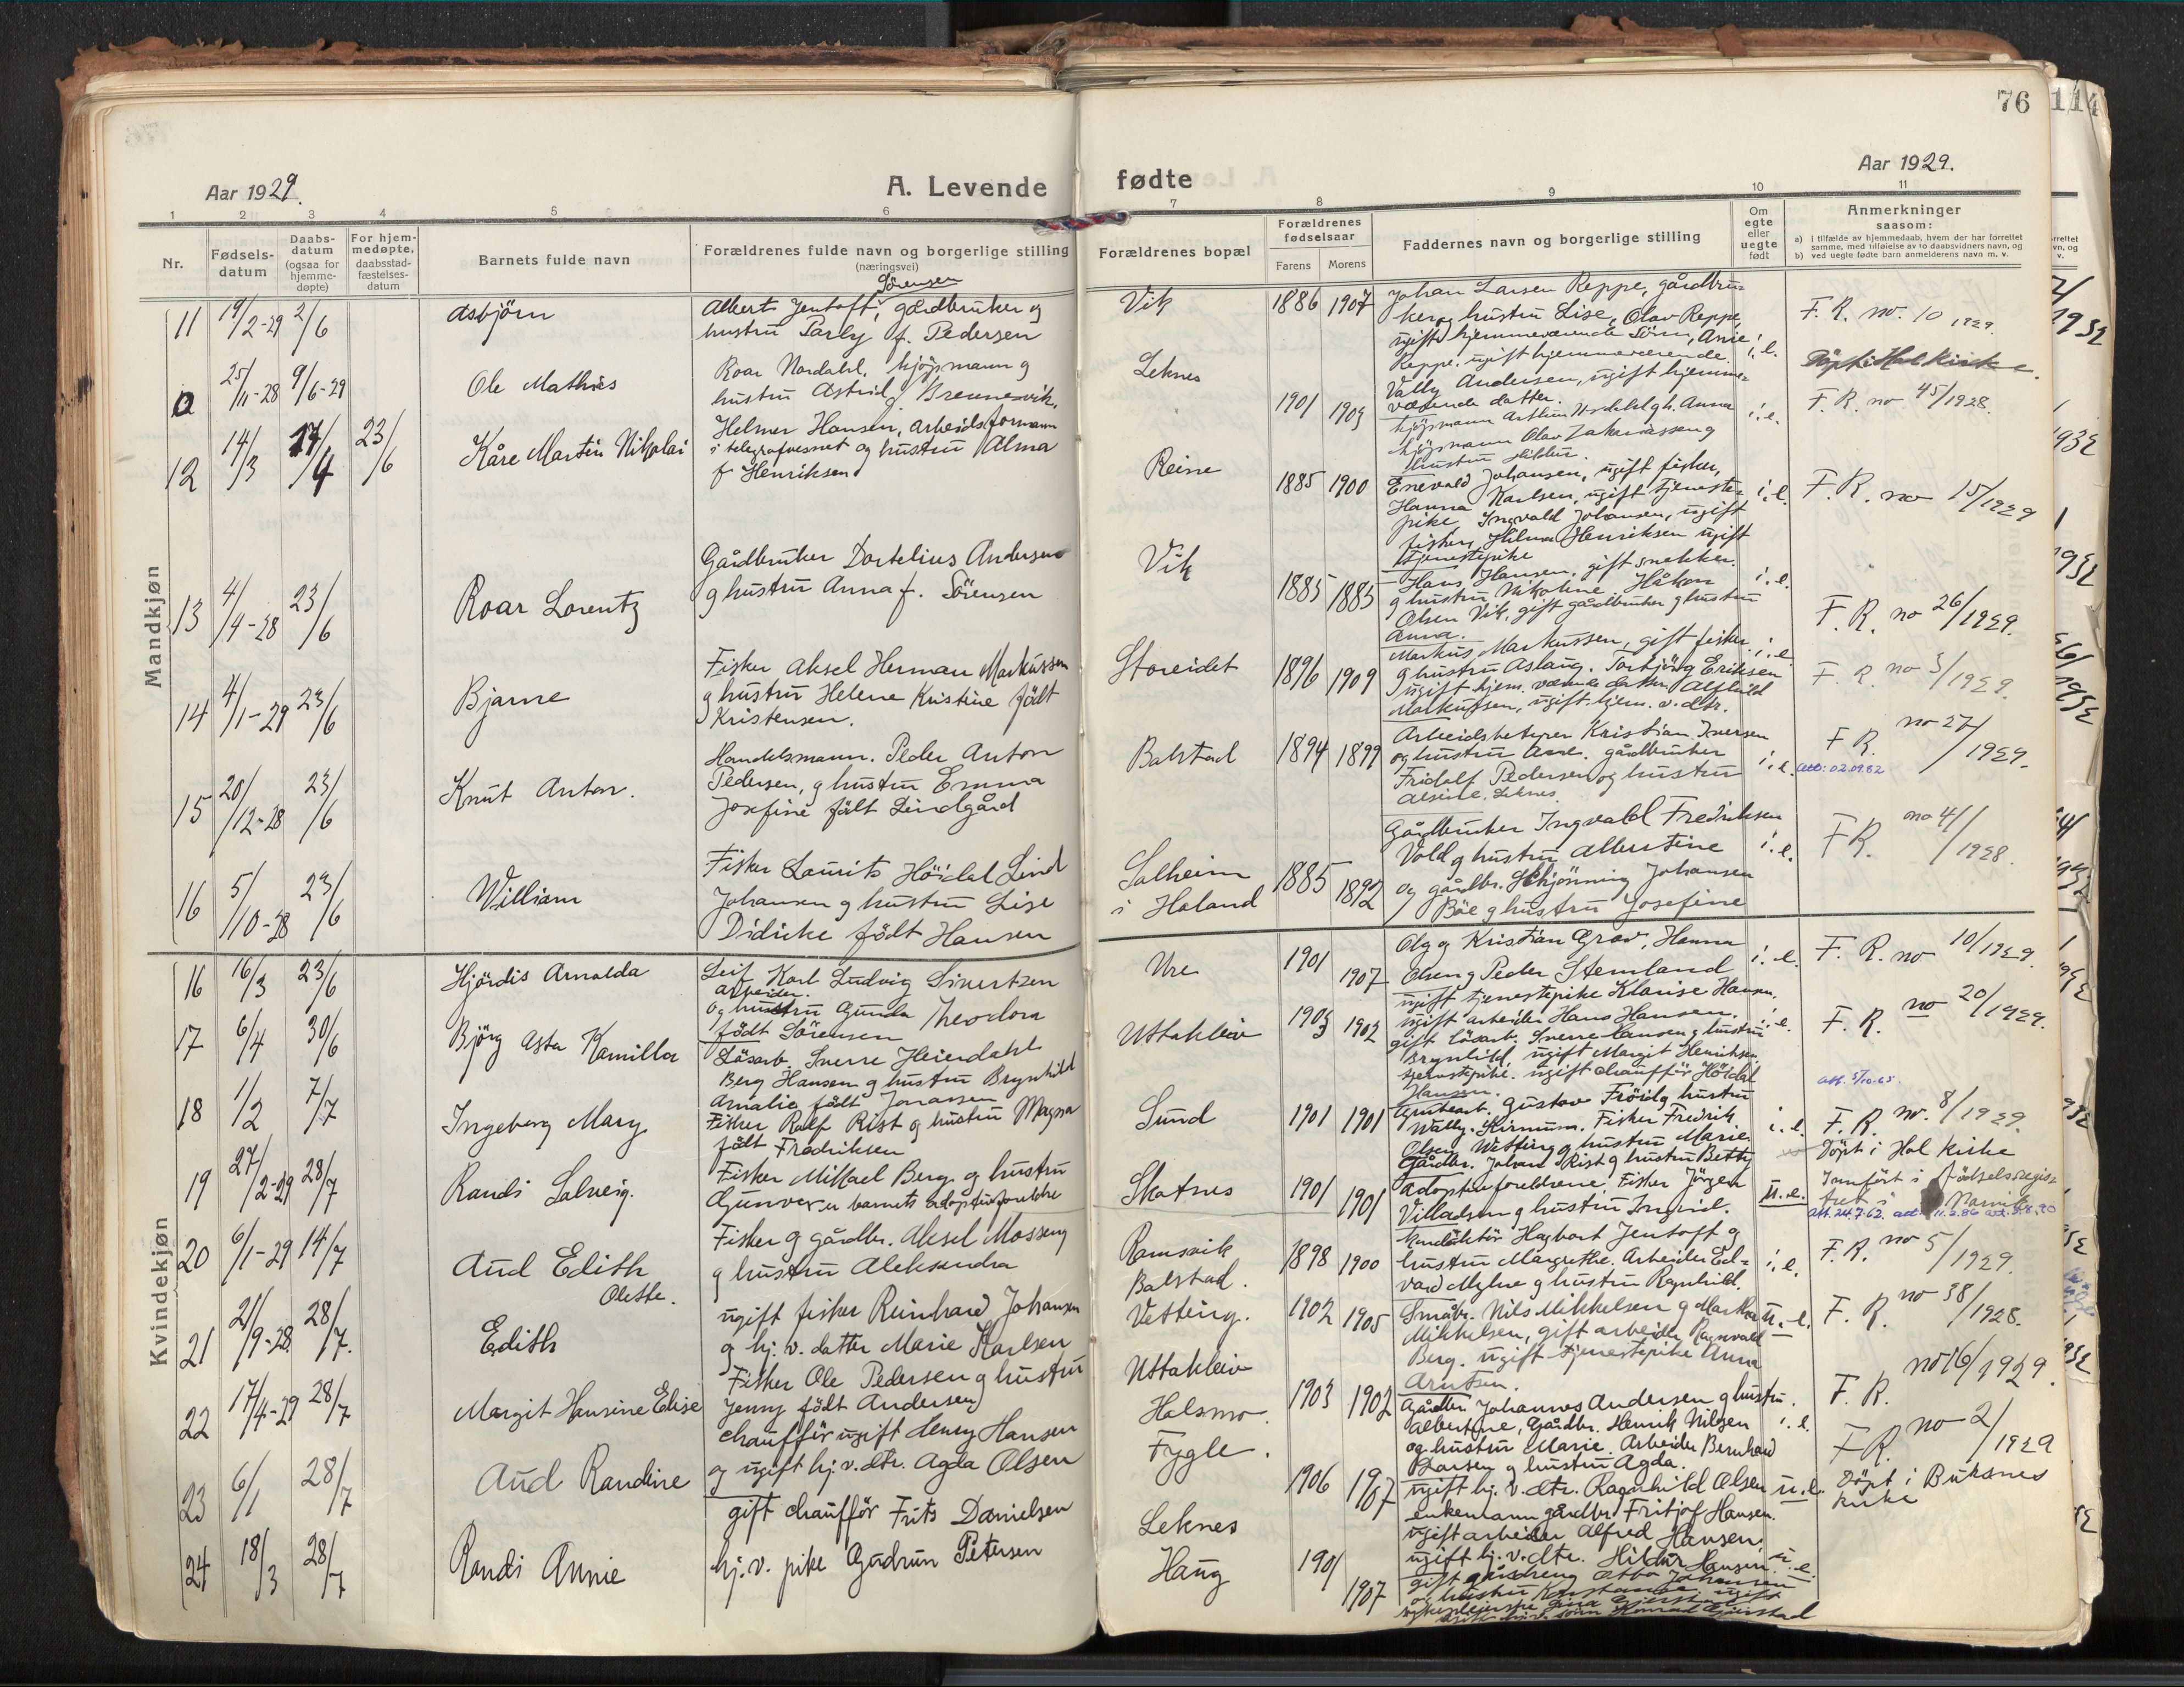 76
114
Aar 1929.
A. Levende
fødte
Aar 1929.
1 2 3 4 5 6 7 8 9 10 11
Nr.
Fødsels-
datum
Daabs-
datum
(ogsaa for
hjemme-
døpte)
For hjem-
medøpte,
daabsstad-
fæstelses-
datum
Barnets fulde navn
Forældrenes fulde navn og borgerlige stilling
(næringsvei)
Forældrenes bopæl
Forældrenes
fødselsaar
Farens Morens
Faddernes navn og borgerlige stilling
Om
egte
eller
uegte
født
Anmerkninger
saasom:
a) i tilfælde av hjemmedaab, hvem der har forrettet
samme, med tilføielse av to daabsvidners navn, og
b) ved uegte fødte barn anmelderens navn m. v.
Mandkjøn
11 19/2-29 2/6
Asbjörn
Sörensen
Albert Jentoft, gårdbruker og
hustru Parly f. Pedersen
Vik
1886 1907
Johan Larsen Reppe, gårdbru-
ker og hustru Lise, Olav Reppe,
ugift hjemmeværende Sönn, Anie
Reppe, ugift hjemmeværende. i. e.
F. R. no. 10 1929.
0 25/11-28 9/6-29
Ole Mathias
Roar Nordahl, kjöpmann g
hustru Astrid f. Brennesvik.
Leknes
1901 1909
Vally Andersen, ugift hjemme-
værende datter.
kjöpmann Olav Zakariassen g
hustru Hildur.
i. e.
Döpt i Hol kirke.
F. R. no 45/1928.
12 14/3 17/4 23/6
Kåre Martin Nikolai
Helmer Hansen, arbeidsformann
i telegrafvesnet og hustru Alma
f Henriksen
Reine
1885 1900
Enevald Johansen, ugift fisker,
Hanna Karlsen, ugift tjeneste-
pike Ingvald Johansen, ugift
fisker, Hilma Henriksen ugift
tjenestepike
i. e.
F. R. no 15/1929
13 4/4-28 23/6
Roar Lorentz
Gårdbruker Dortelius Andersen
g hustru Anna f. Sörensen
Vik
1885 1885
Hans Hansen, gift snekker
g hustru Nikoline Håkon
Olsen Vik, gift gårdbruker g hustru
Anna.
i. e.
F. R. no 26/1929.
14 4/1-29 23/6
Bjarne
Fisker Aksel Herman Markussen
g hustru Helene Kristine födt
Kristensen.
Storeidet
1896 1909
Markus Markussen, gift fisker
g hustru Aslaug. Torbjörg Eriksen
ugift hjem. værende datter Alfhild
Markussen, ugift hjem. v. dtr.
i. e
F. R. no 3/1929.
15 20/12-28 23/6
Knut Anton.
Handelsmann. Peder Anton
Pedersen, g hustru Emma
Josefine födt Lindgård
Balstad
1894 1899
Arbeidsbetyrer Kristian Iversen
og hustru Ane. gårdbruker
Fridolf Pedersen og hustru
Alsine. Leknes
i. e.
F R. no 27/1929.
att: 02.09.82
16 5/10-28 23/6
William
Fisker Laurits Höidal Lind
Johansen g hustru Lise
Didrike födt Hansen
Solheim
i Holand
1885 1892
Gårdbruker Ingvald Fredriksen
Vold g hustru Albertine
og gårdbr. Hjönning Johansen
Böe g hustru Josefine
i. e.
F R. no 41/1928.
Kvindekjøn
16 16/3 23/6
Hjördis Arnolda
Leif Karl Ludvig Sivertzen
arbeider.
og hustru Gunda Theodora
födt Sörensen
Ure
1901 1907
Olg og Kristian Grav, Hanna
Olsen g Peder Stemland
ugift tjenestepike Klarise Hansen.
ugift arbeider Hans Hansen.
i. e.
F. R. no 10/1929.
17 6/4 30/6
Björg Asta Kamilla
Lösarb. Sverre Heierdahl
Berg Hansen g hustru Brynhild
Amalie födt Jonassen
Uttakleiv
1903 1902
gift lösarb. Sverre Hansen g hustru
Brynhild, ugift Margit Henriksen
tjenestepike. ugift chaufför Höidal
Hansen.
i. e.
F. R. no 20/1929.
att. 5/10-65
18 1/2 7/7
Ingeborg Mary
Fisker Rolf Rist g hustru Magna
födt Fredriksen
Sund
1901 1901
Grubearb. Gustav Fröid g hustru
Wally. Kirnum. Fisker Fredrik
Olsen Wetting g hustru Marie.
Gårdbr. Johan Rist g hustru Betty
i. e.
F. R. no. 8/1929.
19 27/2-29 28/7
Randi Solveig.
Fisker Mikael Berg og hustru
Gunvor er barnets adoptivforeldre
Skotnes
1901 1901
Adoptivforeldrene, Fisker Jörgen
Villadsen g hustru Ingrid.
u. e.
Döpt i Hol kirke
Innfört i födselsregis-
tret i Narvik
att. 24.7.62.
20 6/1-29 14/7
Aud Edith
Olette.
Fisker g gårdbr. Aksel Mosseng
g hustru Aleksandra
Ramsvik
Balstad.
1898 1900
konduktör Hagbart Jentoft g
hustru Margrethe. Arbeider Ed-
vard Myhre g hustru Ragnhild.
i. e.
F. R. no 5/1929.
21 21/9-28 28/7.
Edith
ugift fisker Reinhard Johansen
g hj. v. datter Marie Karlsen
Vetting.
1902 1905
Småbr. Nils Mikkelsen g Martha
Mikkelsen, gift arbeider Ragnvald
Berg. ugift tjenestepike Anna
Arntsen.
u. e.
F. R. no 38/1928.
22 17/4-29 28/7
Margit Hansine Elise
Fisker Ole Pedersen g hustru
Jenny födt Andersen
Uttakleiv
1903 1902
Gårdbr. Johannes Andersen g hustru.
Albertine, Gårdbr. Henrik Nilsen
og hustru Marie. Arbeider Bernhard
Larsen g hustru Agda.
i. e.
F. R. no 16/1929.
23 6/1 28/7
Aud Randine
chaufför ugift Henry Hansen
og ugift hj. v. dtr. Agda Olsen
Holsmo.
Fygle.
1906 1907
ugift hj. v. dtr. Ragnhild Olsen
enkemann gårdbr. Fritjof Hansen.
ugift arbeider Alfred Hansen.
ugift hj. v. dtr. Hildur Hansen.
u. e.
F R. no 2/1929
Döpt i Buksnes
kirke
24 18/3 28/7
Randi Annie
gift chaufför Frits Danielsen
hj. v. pike Gudrun Petersen
Leknes
Haug
1901 1907
gift gårdreng Otto Johansen
og hustru Konstanse. ugift
u. e.